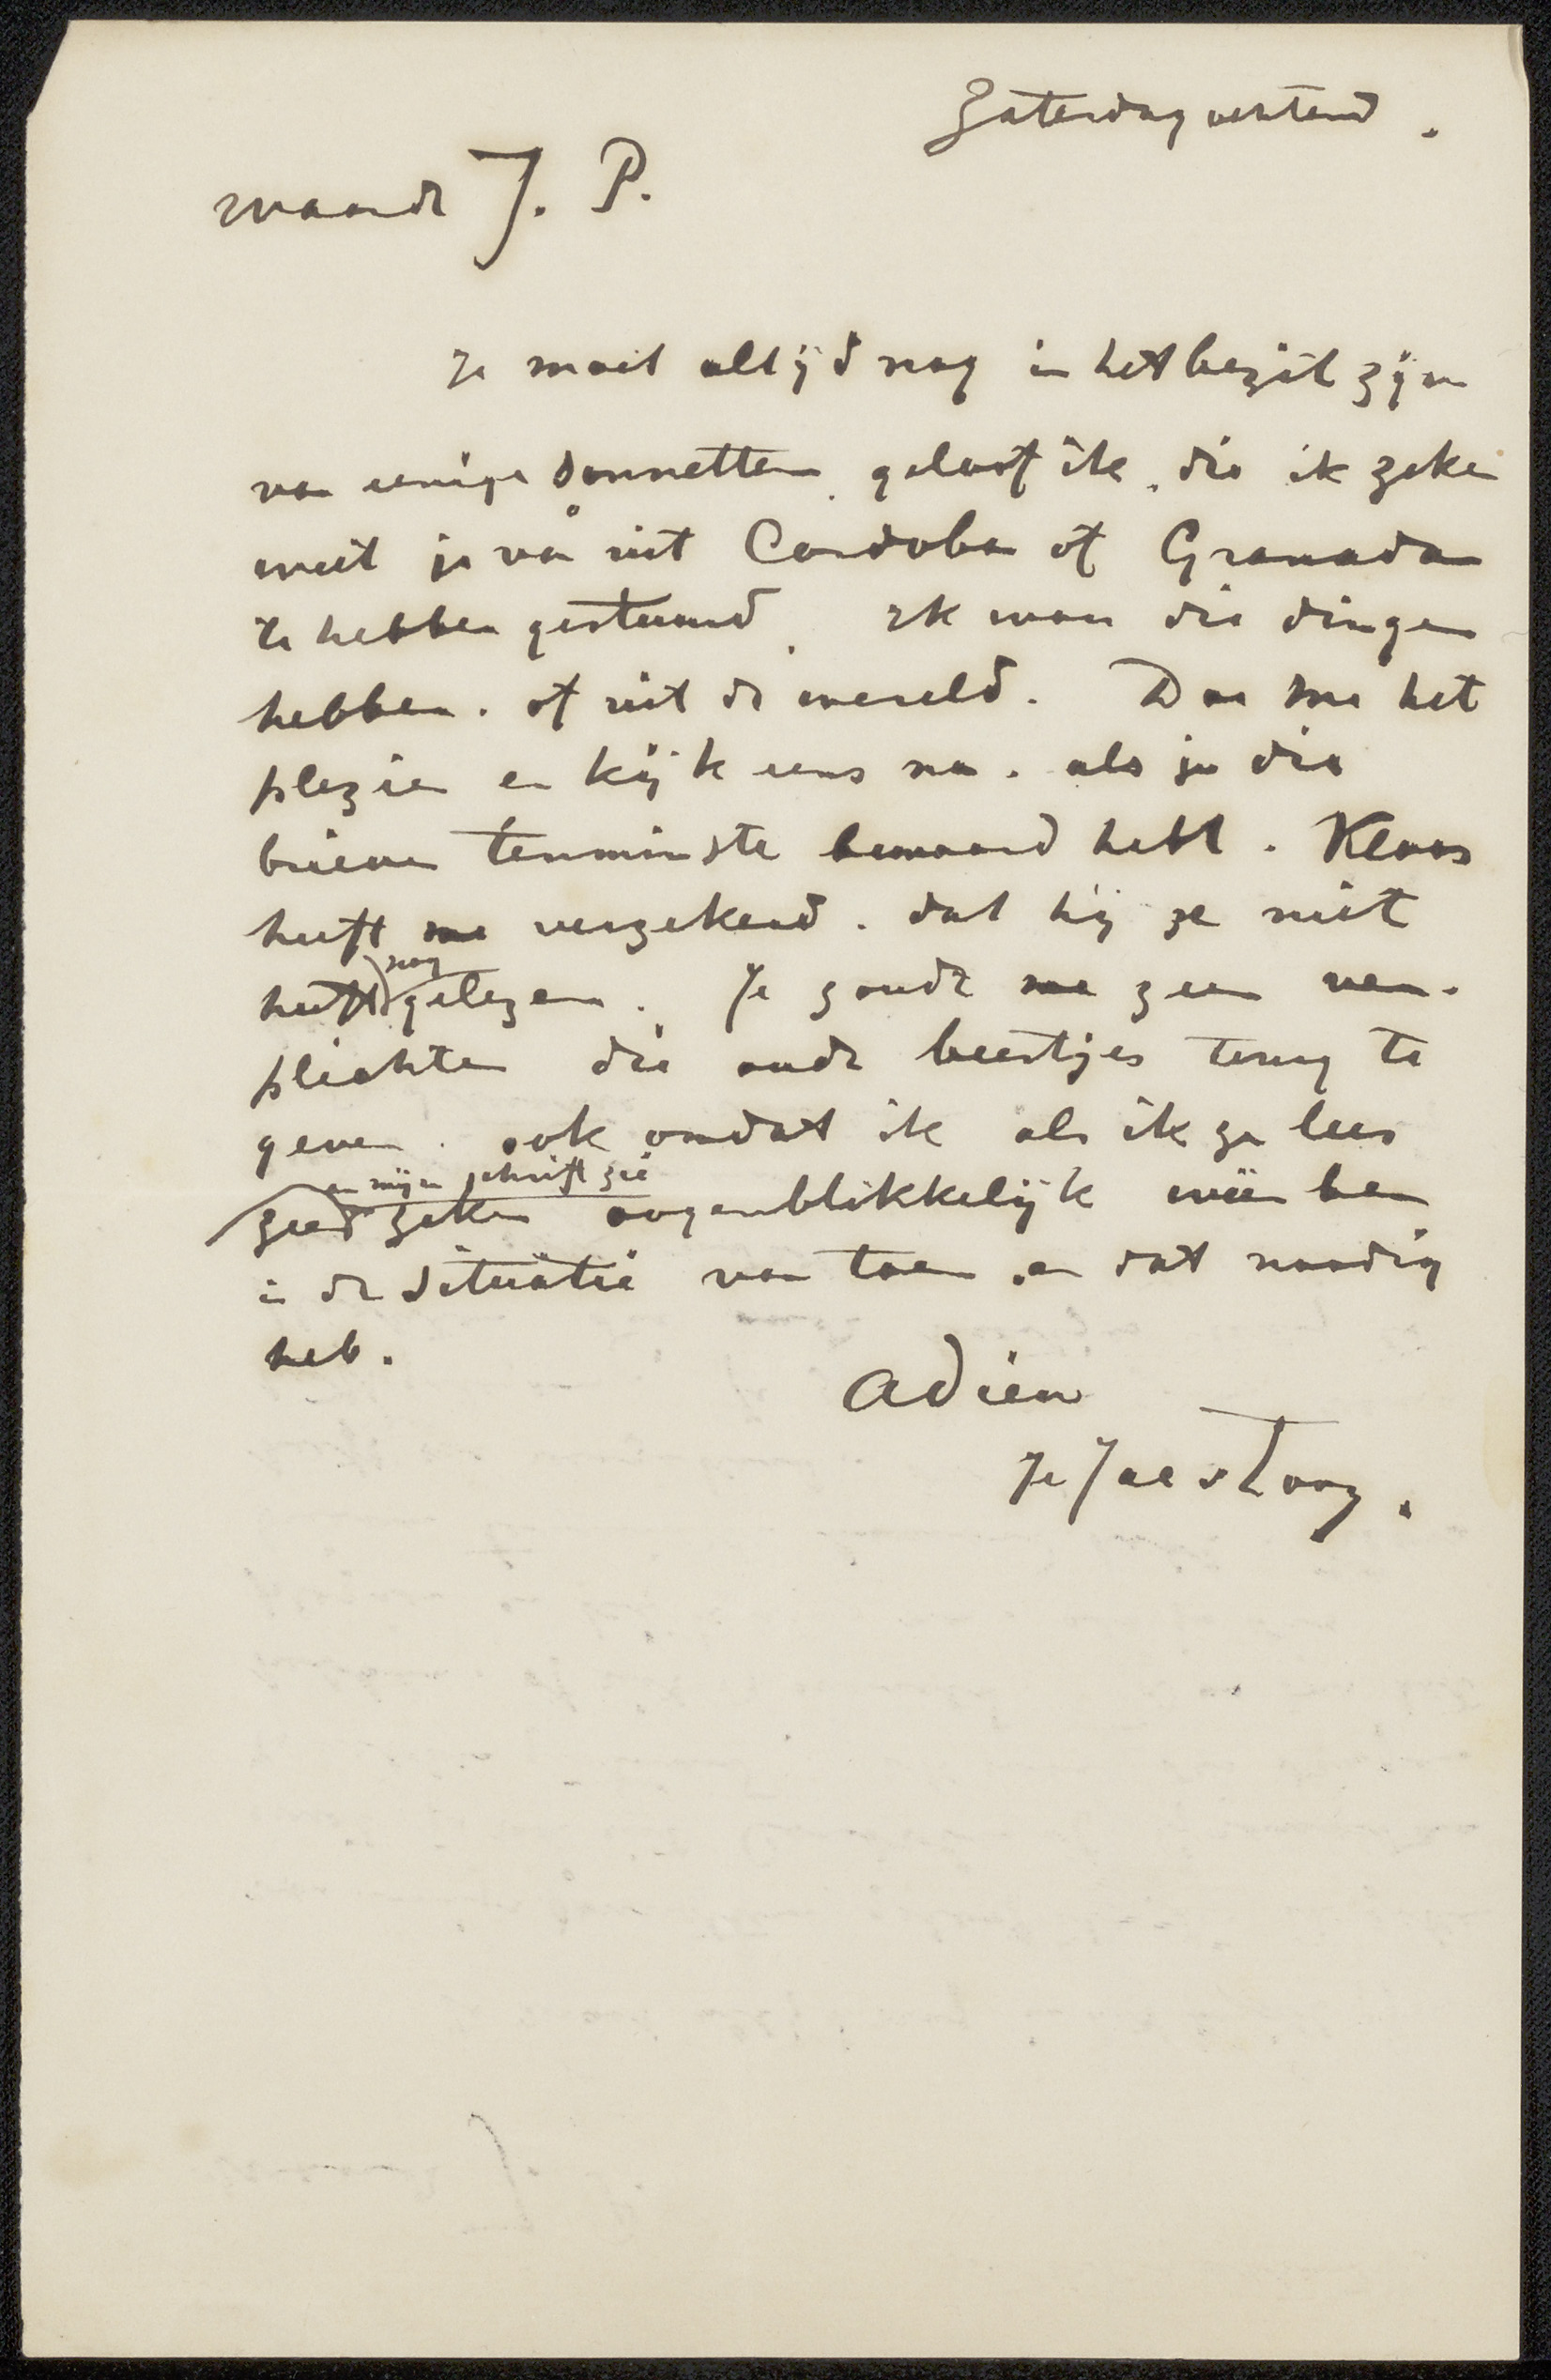 Zaterdag ochtend.
Waarde J. P.
Je moet altijd nog in het bezit zijn
van eenige sonnetten, geloof ik, die ik zeker
weet je van uit Cordoba of Granada
te hebben gestuurd. Ik wou die dingen
hebben. of uit de wereld. Doe me het
plezier en kijk eens na. als je die
brieven tenminste bewaard hebt. Kloos
heeft me verzekerd. dat hij ze niet
heeft nog gelezen. Je zoudt me zeer ver-
plichten die oude beestjes terug te
geven. ook omdat ik als ik ze lees
en mijn schrift zie
zeer zeker oogenblikkelijk weer ben
in de situatie van toen. en dat noodig
heb.
Adieu
Je Jac v Looy.